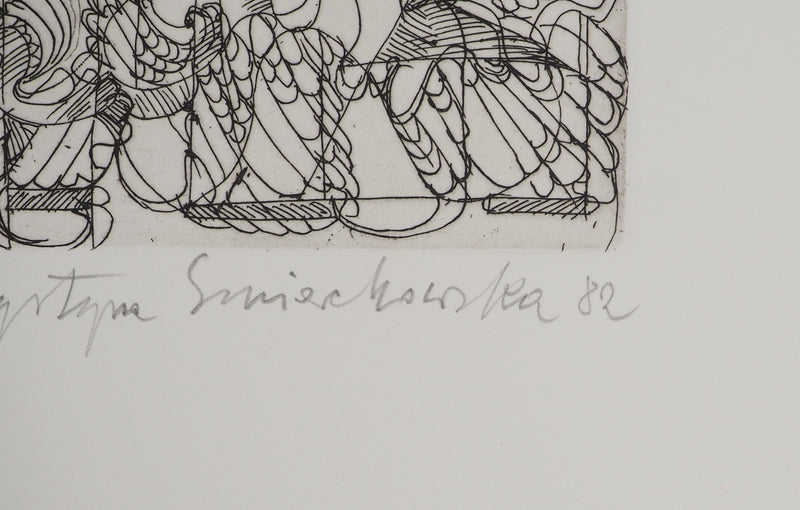 ystyna Smierchowska 82